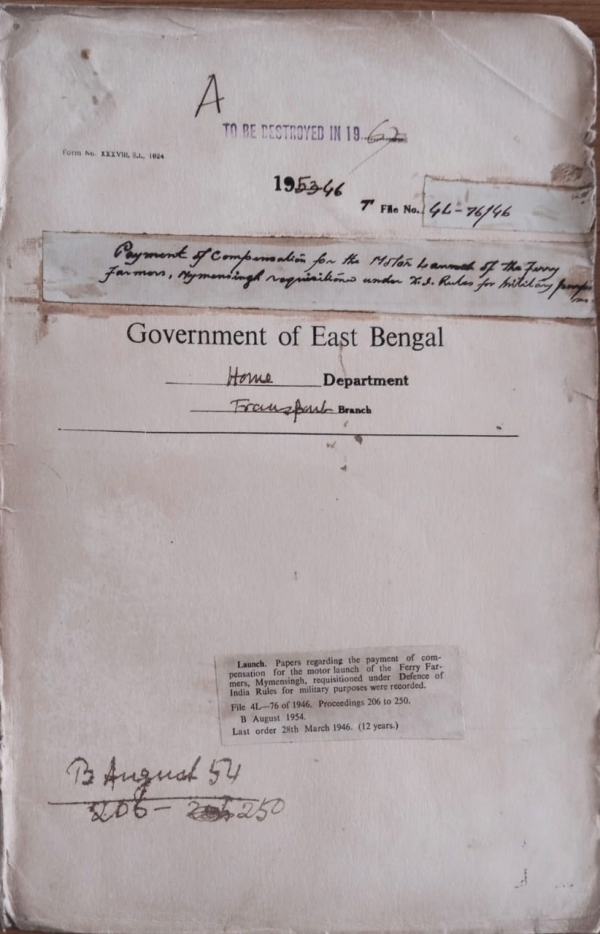 A
TO BE DESTROYED IN 1962
Form No. XXXVIII, S.L., 1024
195346
T File No. 4L-76/46
Payment of Compensation for the Motor Launch of the Ferry
Farmers, Mymensingh requisitioned under D.I. Rules for Military
Government of East Bengal
Home Department
Transport Branch
Launch. Papers regarding the payment of com-
pensation for the motor launch of the Ferry Far-
mers, Mymensingh, requisitioned under Defence of
India Rules for military purposes were recorded.
File 4L—76 of 1946. Proceedings 206 to 250.
B August 1954.
Last order 28th March 1946. (12 years.)
B August 54
206- 250